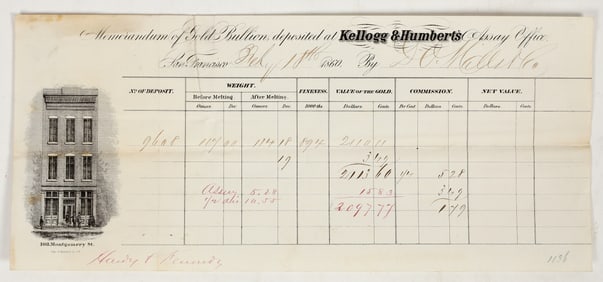 Memorandum of Gold Bullion, deposited at Kellogg & Humberts Assay Office.
San Francisco, Feby 18th 1860. By D.O. Mills & Co
No. OF DEPOSIT. WEIGHT. FINENESS. VALUE OF THE GOLD. COMMISSION. NET VALUE.
Before Melting. After Melting.
Ounces Dec Ounces Dec 1000ths Dollars Cents Per Cent Dollars Cents Dollars Cents
9608 114 18 894 2110 11
19 3 49
2113 60 1/4 5 28
Assay 5.28 15 83 3 49
10.55 2097 77 1 79
108 Montgomery St.
1136